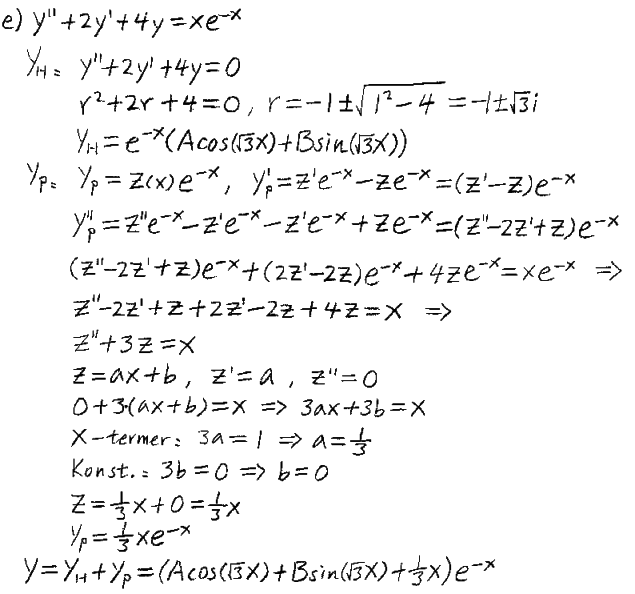 e) y''+2y'+4y=xe⁻ˣ
y_H: y''+2y'+4y=0
r²+2r+4=0, r=-1±√(1²-4) =-1±√3i
y_H=e⁻ˣ(Acos(√3x)+Bsin(√3x))
y_p: y_p=z(x)e⁻ˣ, y'_p=z'e⁻ˣ-ze⁻ˣ=(z'-z)e⁻ˣ
y''_p=z''e⁻ˣ-z'e⁻ˣ-z'e⁻ˣ+ze⁻ˣ=(z''-2z'+z)e⁻ˣ
(z''-2z'+z)e⁻ˣ+(2z'-2z)e⁻ˣ+4ze⁻ˣ=xe⁻ˣ =>
z''-2z'+z+2z'-2z+4z=x =>
z''+3z=x
z=ax+b, z'=a, z''=0
0+3·(ax+b)=x => 3ax+3b=x
x-termer: 3a=1 => a=1/3
Konst.: 3b=0 => b=0
z=1/3x+0=1/3x
y_p=1/3xe⁻ˣ
y=y_H+y_p=(Acos(√3x)+Bsin(√3x)+1/3x)e⁻ˣ